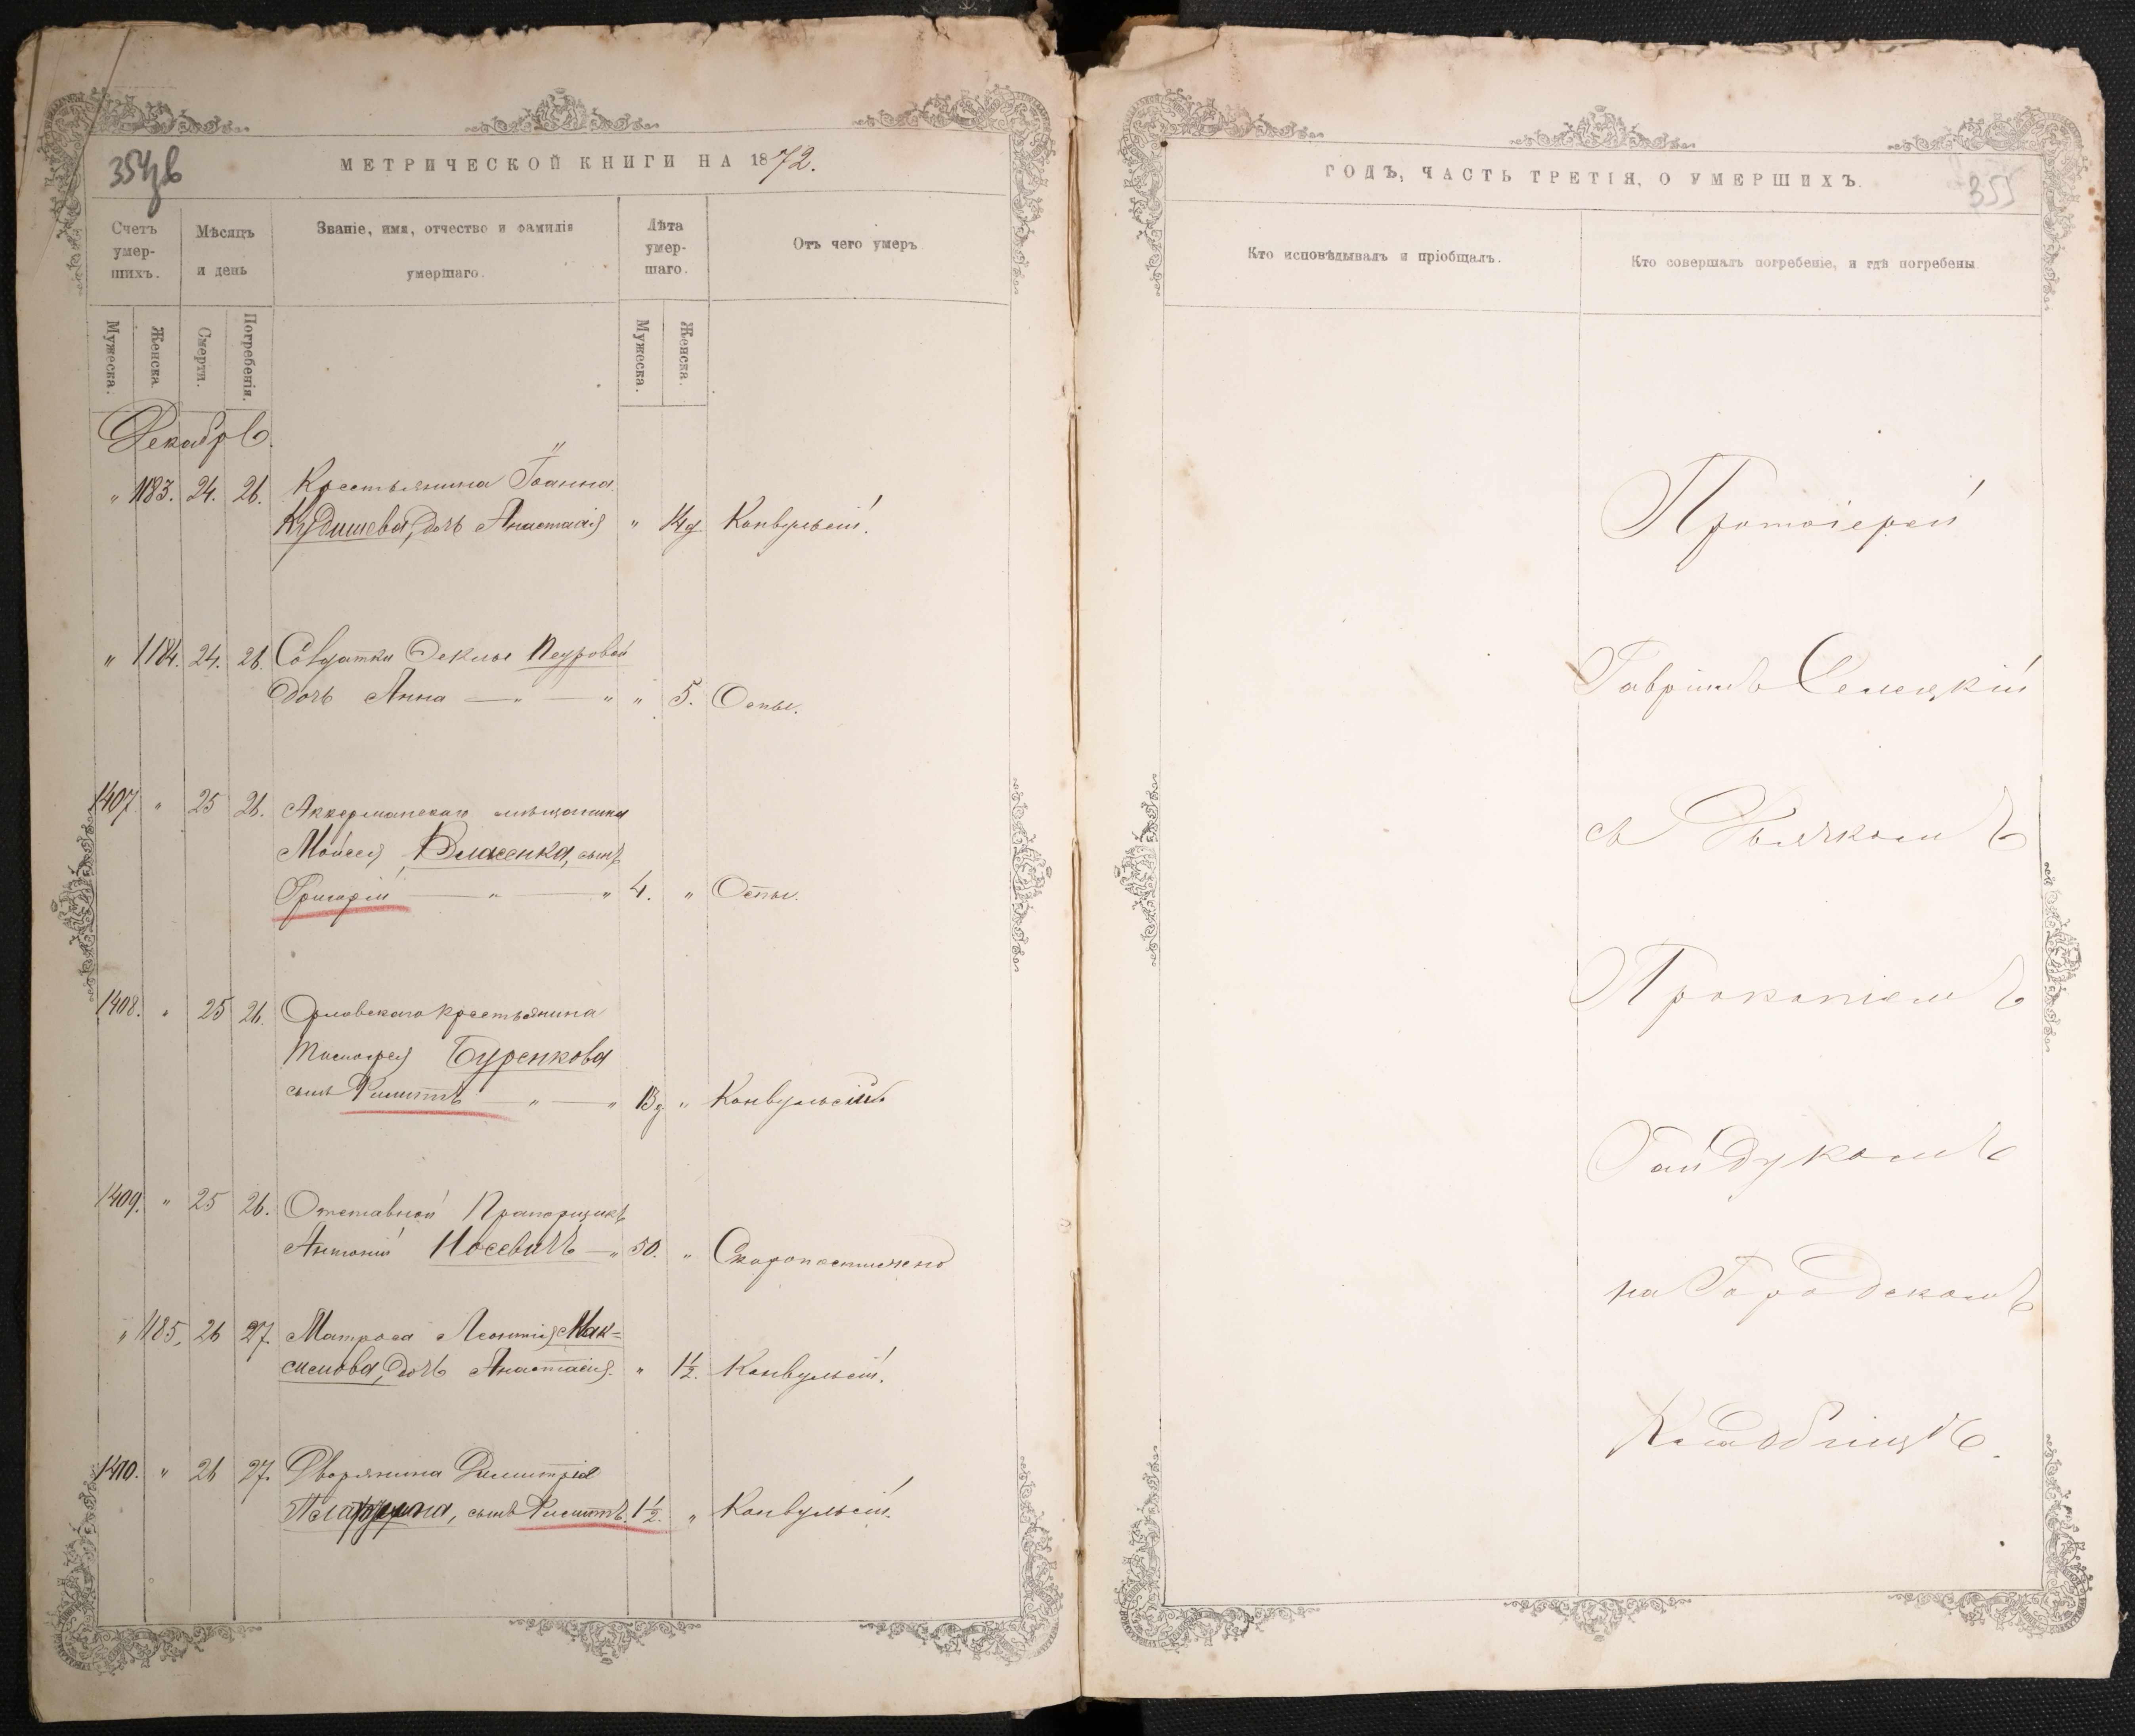 354зв
МЕТРИЧЕСКОЙ КНИГИ НА 1872.
Счетъ умер-шихъ.
Мѣсяцъ и день
Званіе, имя, отчество и фамилія умершаго.
Лѣта умер-шаго.
Отъ чего умеръ
Мужеска.
Женска
Смерти.
Погребенія.
Мужеска.
Женска.
Декабрь.
" 1183. 24. 26. Крестьянина Іоанна
дочь Анастасія " 14д Конвульсій.
" 1184. 24. 26. Солдатки Феклы Петровой
дочь Анна — " — " " 5. Оспы.
1407 " 25 26. Аккерманскаго мѣщанина
Моисея Власенка, сынъ
Григорій — " — " 4. " Оспы.
1408. " 25 26. Орловскаго крестьянина
Тимофея Буренкова
сынъ Филиппъ — " — " 13д " Конвульсій
1409. " 25 26. Отставной Прапорщикъ
Антоній Носевичъ — " 50. " Скоропостижно
" 1185. 26 27. Матроса Леонтія Мак=
симова, дочь Анастасія. " 1½. Конвульсій.
1410. " 26 27. Дворянина Димитрія
сынъ Филиппъ. 1½. " Конвульсій.
ГОДЪ, ЧАСТЬ ТРЕТІЯ, О УМЕРШИХЪ.
355
Кто исповѣдывалъ и пріобщалъ.
Кто совершалъ погребеніе, и гдѣ погребены
Протоіерей
Гавріилъ Селецкій
съ Дьячкомъ
Прокопіемъ
Гайдукомъ
на Городскомъ
Кладбищѣ.